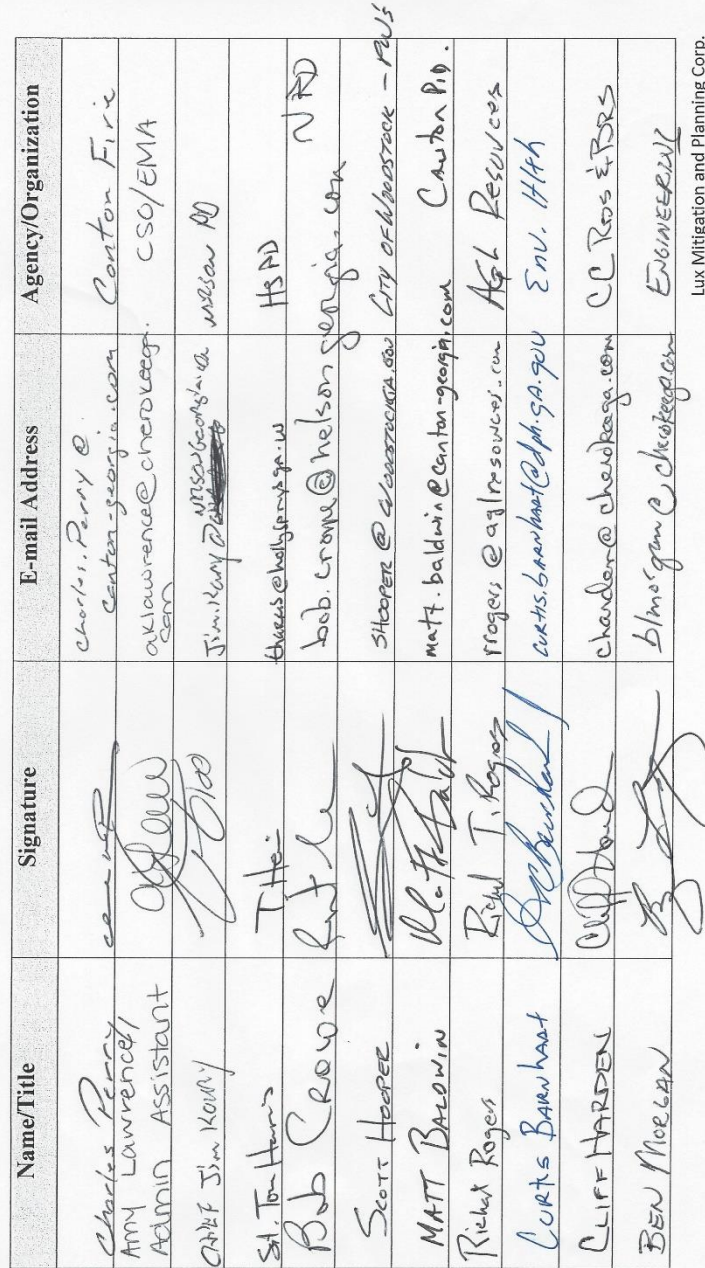 Name/Title Signature E-mail Address Agency/Organization
Charles Perry charles.perry@ canton-georgia.com Canton Fire
Amy Lawrence, Admin Assistant aklawrence@cherokeega.com CSO/EMA
CHIEF Jim Koury Nelson PD
Sgt. Tom Harris HSPD
Bob Crowe bob.crowe@nelsongeorgia.com NPD
SCOTT HOOPER SHOOPER@WOODSTOCKGA.GOV CITY OF WOODSTOCK - PW's
MATT BALDWIN matt.baldwin@canton-georgia.com Canton P.D.
Richard Rogers Richard T. Rogers rrogers@aglresources.com AGL Resources
CURTIS BARNHART curtis.barnhart@dph.ga.gov Env. Hlth
CLIFF HARDEN charden@cherokeega.com CC Rds & BRS
BEN MORGAN blmorgan@cherokeega.com ENGINEERING
Lux Mitigation and Planning Corp.